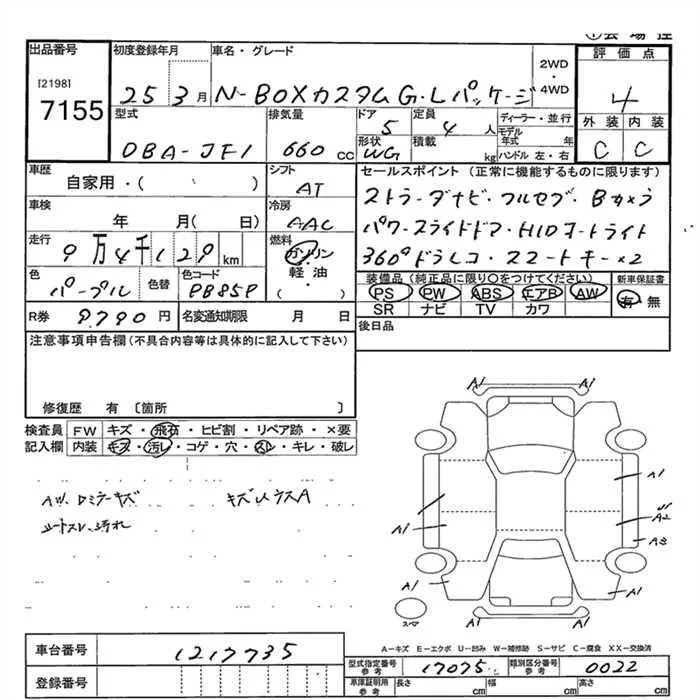 出品番号
[2198]
7155
初度登録年月
25 3月
車名・グレード
N-BOXカスタム G・Lパッケージ
2WD
・
4WD
評価点
4
外装 内装
C C
型式
DBA-JF1
排気量
660 CC
ドア
5
形状
WG
定員
4 人
積載
kg
ディーラー・並行
モデル年式 年
ハンドル 左・右
車歴
自家用・( )
シフト
AT
車検
年 月( 日)
冷房
AAC
走行
9万4千129 km
燃料
ガソリン
軽油・
( )
色
パープル
色替
色コード
PB85P
R券 9,790 円
名変通知期限 月 日
セールスポイント (正常に機能するものに限ります)
ストラーダナビ・フルセグ・Bカメラ
パワースライドドア・HIDオートライト
360°ドラレコ・スマートキー×2
装備品 (純正品に限り○をつけてください)
新車保証書
PS PW ABS エアB AW
SR ナビ TV カワ
有・無
後日品
注意事項申告欄(不具合内容等は具体的に記入して下さい)
修復歴 有 〔箇所 〕
検査員
記入欄
FW キズ・飛石・ヒビ割・リペア跡・×要
内装 キズ・汚レ・コゲ・穴・スレ・キレ・破レ
シートスレ、汚れ
A1 A1
A1
A1 A2
A3
A1 A1
A1 A1
スペア
A－キズ E－エクボ U－凹み W－補修跡 S－サビ C－腐食 XX－交換済
車台番号 1217735
登録番号
型式指定番号 参考 17075
類別区分番号 参考 0022
車庫証明用 参考 長さ cm 幅 cm 高さ cm